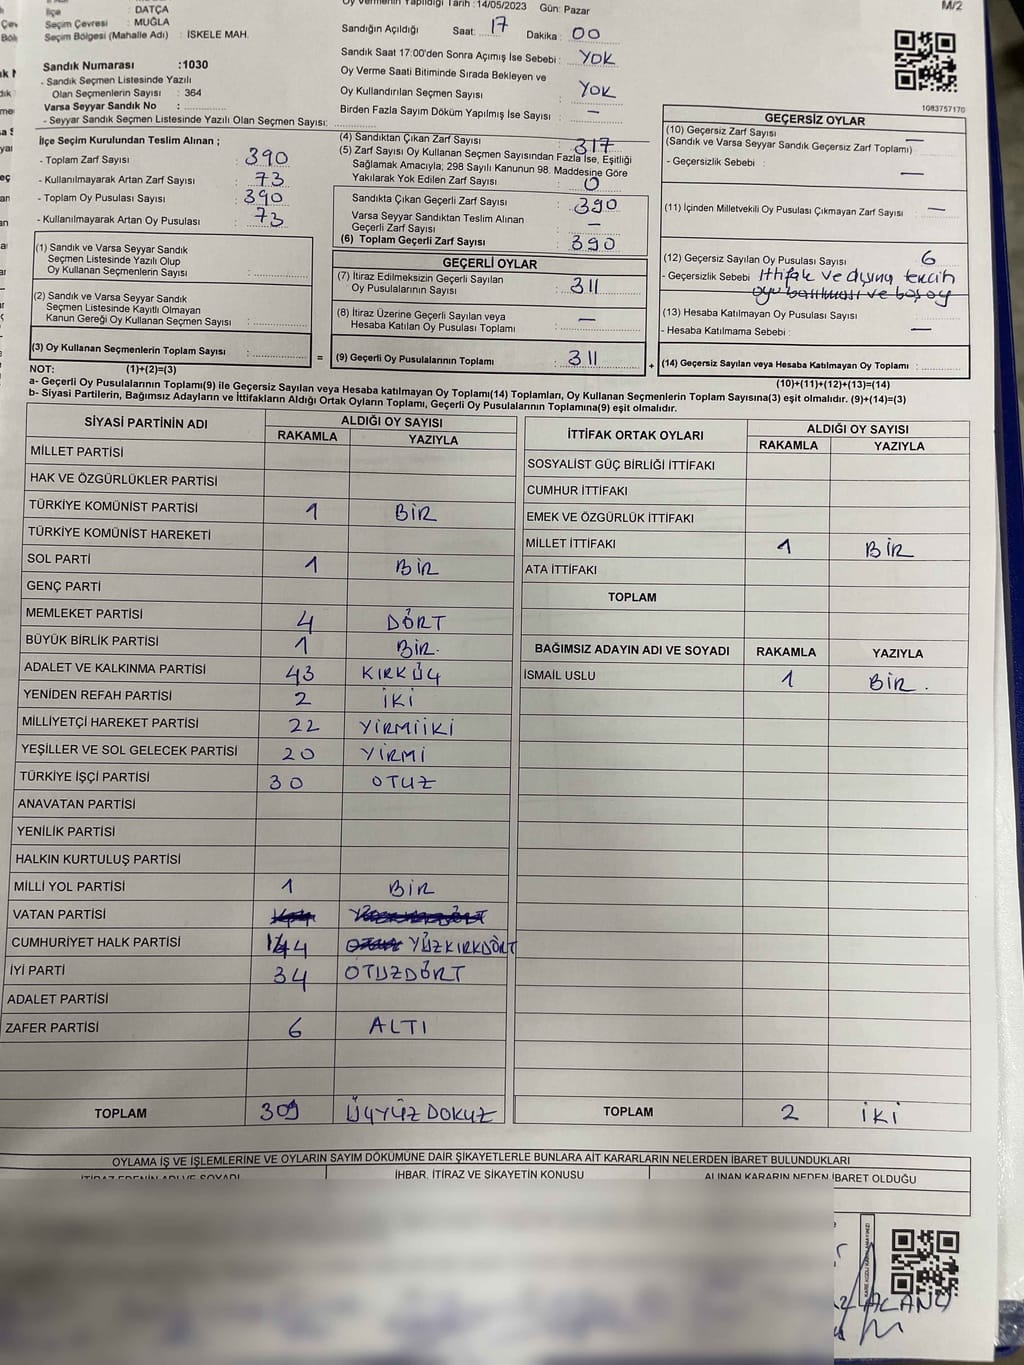 İlçe : DATÇA
Seçim Çevresi : MUĞLA
Seçim Bölgesi (Mahalle Adı) : İSKELE MAH.
Sandık Numarası :1030
- Sandık Seçmen Listesinde Yazılı
Olan Seçmenlerin Sayısı : 364
Varsa Seyyar Sandık No :
- Seyyar Sandık Seçmen Listesinde Yazılı Olan Seçmen Sayısı:
Oy Vermenin Yapıldığı Tarih :14/05/2023 Gün: Pazar
Sandığın Açıldığı Saat: 17 Dakika : 00
Sandık Saat 17:00'den Sonra Açımış İse Sebebi : YOK
Oy Verme Saati Bitiminde Sırada Bekleyen ve
Oy Kullandırılan Seçmen Sayısı : YOK
Birden Fazla Sayım Döküm Yapılmış İse Sayısı : —
M/2
1083757170
İlçe Seçim Kurulundan Teslim Alınan ;
- Toplam Zarf Sayısı : 390
- Kullanılmayarak Artan Zarf Sayısı : 73
- Toplam Oy Pusulası Sayısı : 390
- Kullanılmayarak Artan Oy Pusulası : 73
(1) Sandık ve Varsa Seyyar Sandık
Seçmen Listesinde Yazılı Olup
Oy Kullanan Seçmenlerin Sayısı :
(2) Sandık ve Varsa Seyyar Sandık
Seçmen Listesinde Kayıtlı Olmayan
Kanun Gereği Oy Kullanan Seçmen Sayısı :
(3) Oy Kullanan Seçmenlerin Toplam Sayısı :
(4) Sandıktan Çıkan Zarf Sayısı : 317
(5) Zarf Sayısı Oy Kullanan Seçmen Sayısından Fazla İse, Eşitliği
Sağlamak Amacıyla; 298 Sayılı Kanunun 98. Maddesine Göre
Yakılarak Yok Edilen Zarf Sayısı : 0
Sandıkta Çıkan Geçerli Zarf Sayısı : 390
Varsa Seyyar Sandıktan Teslim Alınan
Geçerli Zarf Sayısı : —
(6) Toplam Geçerli Zarf Sayısı : 390
GEÇERLİ OYLAR
(7) İtiraz Edilmeksizin Geçerli Sayılan
Oy Pusulalarının Sayısı : 311
(8) İtiraz Üzerine Geçerli Sayılan veya
Hesaba Katılan Oy Pusulası Toplamı : —
= (9) Geçerli Oy Pusulalarının Toplamı : 311
GEÇERSİZ OYLAR
(10) Geçersiz Zarf Sayısı : —
(Sandık ve Varsa Seyyar Sandık Geçersiz Zarf Toplamı)
- Geçersizlik Sebebi : —
(11) İçinden Milletvekili Oy Pusulası Çıkmayan Zarf Sayısı : —
(12) Geçersiz Sayılan Oy Pusulası Sayısı : 6
- Geçersizlik Sebebi : ittifak ve dışına tercih
oyu basılması ve boş oy
(13) Hesaba Katılmayan Oy Pusulası Sayısı :
- Hesaba Katılmama Sebebi : —
+ (14) Geçersiz Sayılan veya Hesaba Katılmayan Oy Toplamı :
NOT: (1)+(2)=(3)
(10)+(11)+(12)+(13)=(14)
a- Geçerli Oy Pusulalarının Toplamı(9) ile Geçersiz Sayılan veya Hesaba katılmayan Oy Toplamı(14) Toplamları, Oy Kullanan Seçmenlerin Toplam Sayısına(3) eşit olmalıdır. (9)+(14)=(3)
b- Siyasi Partilerin, Bağımsız Adayların ve İttifakların Aldığı Ortak Oyların Toplamı, Geçerli Oy Pusulalarının Toplamına(9) eşit olmalıdır.
SİYASİ PARTİNİN ADI ALDIĞI OY SAYISI
RAKAMLA YAZIYLA
MİLLET PARTİSİ
HAK VE ÖZGÜRLÜKLER PARTİSİ
TÜRKİYE KOMÜNİST PARTİSİ 1 BİR
TÜRKİYE KOMÜNİST HAREKETİ
SOL PARTİ 1 BİR
GENÇ PARTİ
MEMLEKET PARTİSİ 4 DÖRT
BÜYÜK BİRLİK PARTİSİ 1 BİR.
ADALET VE KALKINMA PARTİSİ 43 KIRKÜÇ
YENİDEN REFAH PARTİSİ 2 İKİ
MİLLİYETÇİ HAREKET PARTİSİ 22 YİRMİİKİ
YEŞİLLER VE SOL GELECEK PARTİSİ 20 YİRMİ
TÜRKİYE İŞÇİ PARTİSİ 30 OTUZ
ANAVATAN PARTİSİ
YENİLİK PARTİSİ
HALKIN KURTULUŞ PARTİSİ
MİLLİ YOL PARTİSİ 1 BİR
VATAN PARTİSİ
CUMHURİYET HALK PARTİSİ 144 YÜZKIRKDÖRT
İYİ PARTİ 34 OTUZDÖRT
ADALET PARTİSİ
ZAFER PARTİSİ 6 ALTI
TOPLAM 309 ÜÇYÜZ DOKUZ
İTTİFAK ORTAK OYLARI ALDIĞI OY SAYISI
RAKAMLA YAZIYLA
SOSYALİST GÜÇ BİRLİĞİ İTTİFAKI
CUMHUR İTTİFAKI
EMEK VE ÖZGÜRLÜK İTTİFAKI
MİLLET İTTİFAKI 1 BİR
ATA İTTİFAKI
TOPLAM
BAĞIMSIZ ADAYIN ADI VE SOYADI RAKAMLA YAZIYLA
İSMAİL USLU 1 BİR.
TOPLAM 2 İKİ
OYLAMA İŞ VE İŞLEMLERİNE VE OYLARIN SAYIM DÖKÜMÜNE DAİR ŞİKAYETLERLE BUNLARA AİT KARARLARIN NELERDEN İBARET BULUNDUKLARI
İTİRAZ EDENİN ADI VE SOYADI İHBAR, İTİRAZ VE ŞİKAYETİN KONUSU ALINAN KARARIN NEDEN İBARET OLDUĞU